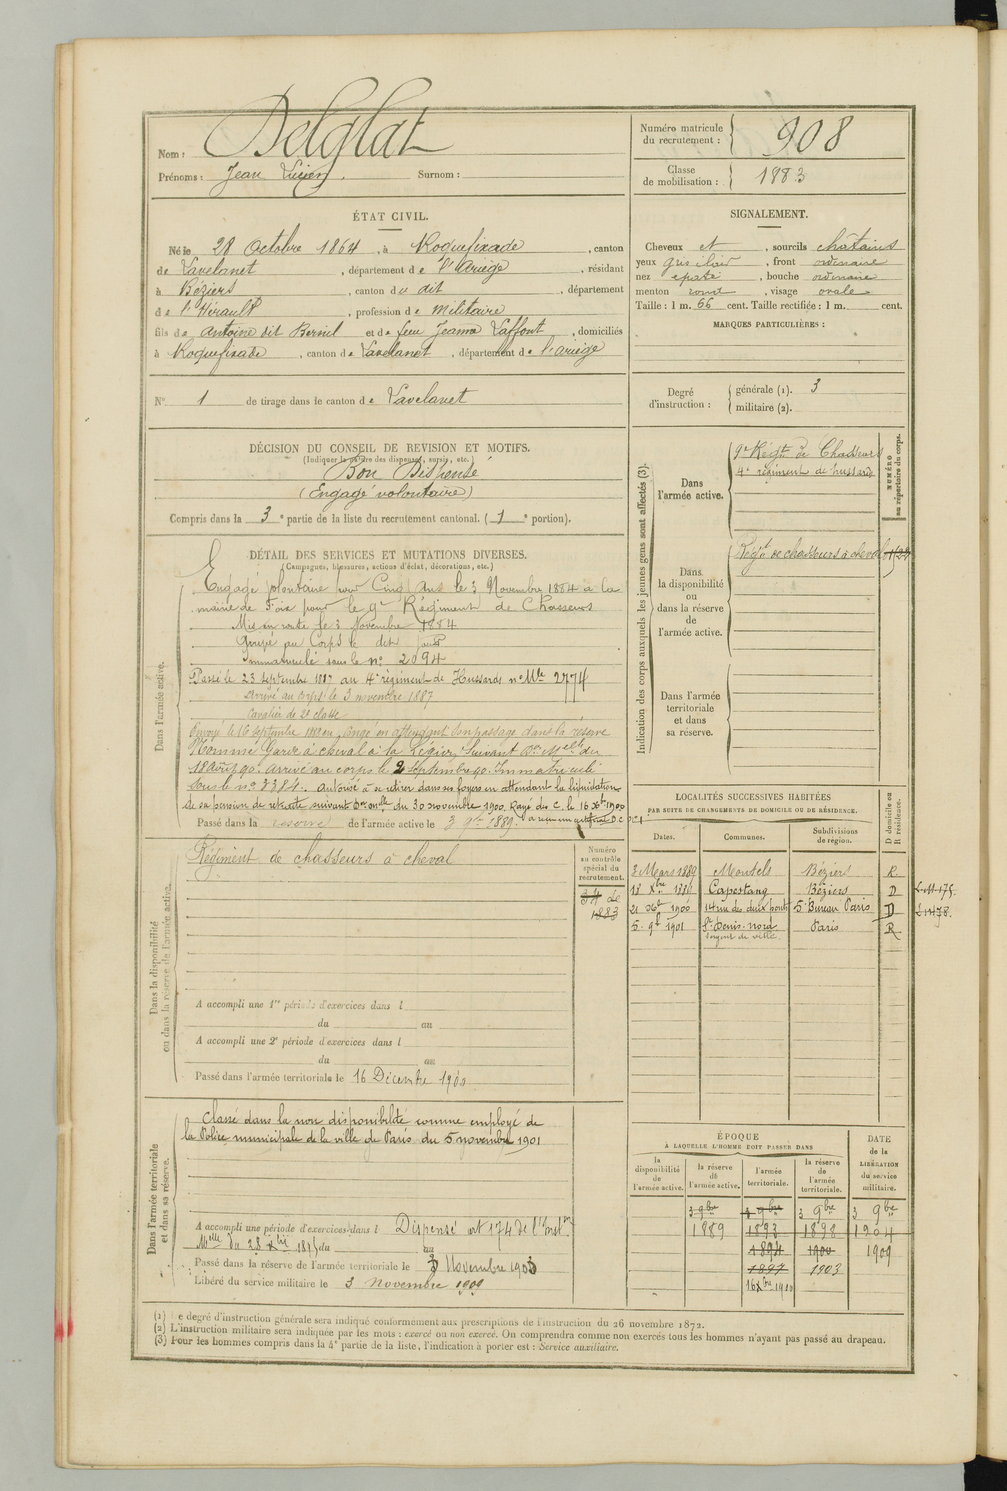 Nom : Delglat
Prénoms : Jean Lucien. Surnom :
Numéro matricule du recrutement : 908
Classe de mobilisation : 1883
ÉTAT CIVIL.
Né le 28 Octobre 1864, à Roquefixade, canton
de Lavelanet, département de l'Ariège, résidant
à Béziers, canton du dit, département
de l'Hérault, profession de Militaire
fils de Antoine dit Bernil et de feue Jeanne Laffont, domiciliés
à Roquefixade, canton de Lavelanet, département de l'ariège
N° 1 de tirage dans le canton de Lavelanet
SIGNALEMENT.
Cheveux et, sourcils châtains
yeux gris clair, front ordinaire
nez épaté, bouche ordinaire
menton rond, visage ovale
Taille : 1 m. 66 cent. Taille rectifiée : 1 m. cent.
MARQUES PARTICULIÈRES :
Degré d'instruction : générale (1). 3
militaire (2).
DÉCISION DU CONSEIL DE REVISION ET MOTIFS.
(Indiquer la nature des dispenses, sursis, etc.)
Bon Dispensé
(Engagé volontaire)
Compris dans la 3e partie de la liste du recrutement cantonal. (1e portion).
DÉTAIL DES SERVICES ET MUTATIONS DIVERSES.
(Campagnes, blessures, actions d'éclat, décorations, etc.)
Dans l'armée active.
Engagé volontaire pour Cinq ans le 3 Novembre 1884 à la
mairie de Foix pour le 9e Régiment de Chasseurs
Mis en route le 3 Novembre 1884
Arrivé au Corps le dit jour
Immatriculé sous le n° 2094
Passé le 23 septembre 1887 au 4e régiment de Hussards n° Mle 2774
Arrivé au corps le 3 novembre 1887
Cavalier de 2e classe
Envoyé le 16 septembre 1888 en congé en attendant son passage dans la réserve
Nommé Garde à cheval à la Légion suivant Don Melle du
18 Août 90. arrivé au corps le 2 septembre 90. Immatriculé
sous le n° 8384. autorisé à se retirer dans ses foyers en attendant la liquidation
de sa pension de retraite suivant Don on lle du 30 novembre 1900. Rayé des C. le 16 Xbre 1900
Passé dans la réserve de l'armée active le 3 9bre 1889.
Indication des corps auxquels les jeunes gens sont affectés (3).
Dans l'armée active.
9e Régt de Chasseurs
4e régiment de hussards
NUMÉRO au répertoire du corps.
Dans la disponibilité ou dans la réserve de l'armée active.
Régt de chasseurs à cheval
Dans l'armée territoriale et dans sa réserve.
Dans la disponibilité ou dans la réserve de l'armée active.
Régiment de chasseurs à cheval
Numéro au contrôle spécial du recrutement.
34 de
1883
A accompli une 1re période d'exercices dans l
du au
A accompli une 2e période d'exercices dans l
du au
Passé dans l'armée territoriale le 16 Décembre 1900
LOCALITÉS SUCCESSIVES HABITÉES
PAR SUITE DE CHANGEMENTS DE DOMICILE OU DE RÉSIDENCE.
Dates. Communes. Subdivisions de région. D domicile ou R résidence.
3 Mars 1889 Montels Béziers R
18 Xbre 1889 Capestang Béziers D
21 Xbre 1900 14 rue des deux ponts 5e Bureau Paris D
5 9bre 1901 St Denis-nord Paris R
sergent de ville
Dans l'armée territoriale et dans sa réserve.
Classé dans la non disponibilité comme employé de
la Police municipale de la ville de Paris du 5 novembre 1901
A accompli une période d'exercices dans l Dispensé art 174 de l'Inston
Melle du 28 Xbre 1895 du au
Passé dans la réserve de l'armée territoriale le 3 Novembre 1903
Libéré du service militaire le 3 Novembre 1909
ÉPOQUE
À LAQUELLE L'HOMME DOIT PASSER DANS
DATE de la LIBÉRATION du service militaire.
la disponibilité de l'armée active. la réserve de l'armée active. l'armée territoriale. la réserve de l'armée territoriale.
3 9bre 3 9bre 3 9bre 3 9bre
1889 1893 1898 1904
1894 1900 1909
1897 1903
16 Xbre 1900
(1) Le degré d'instruction générale sera indiqué conformément aux prescriptions de l'instruction du 26 novembre 1872.
(2) L'instruction militaire sera indiquée par les mots : exercé ou non exercé. On comprendra comme non exercés tous les hommes n'ayant pas passé au drapeau.
(3) Pour les hommes compris dans la 4e partie de la liste, l'indication à porter est : Service auxiliaire.